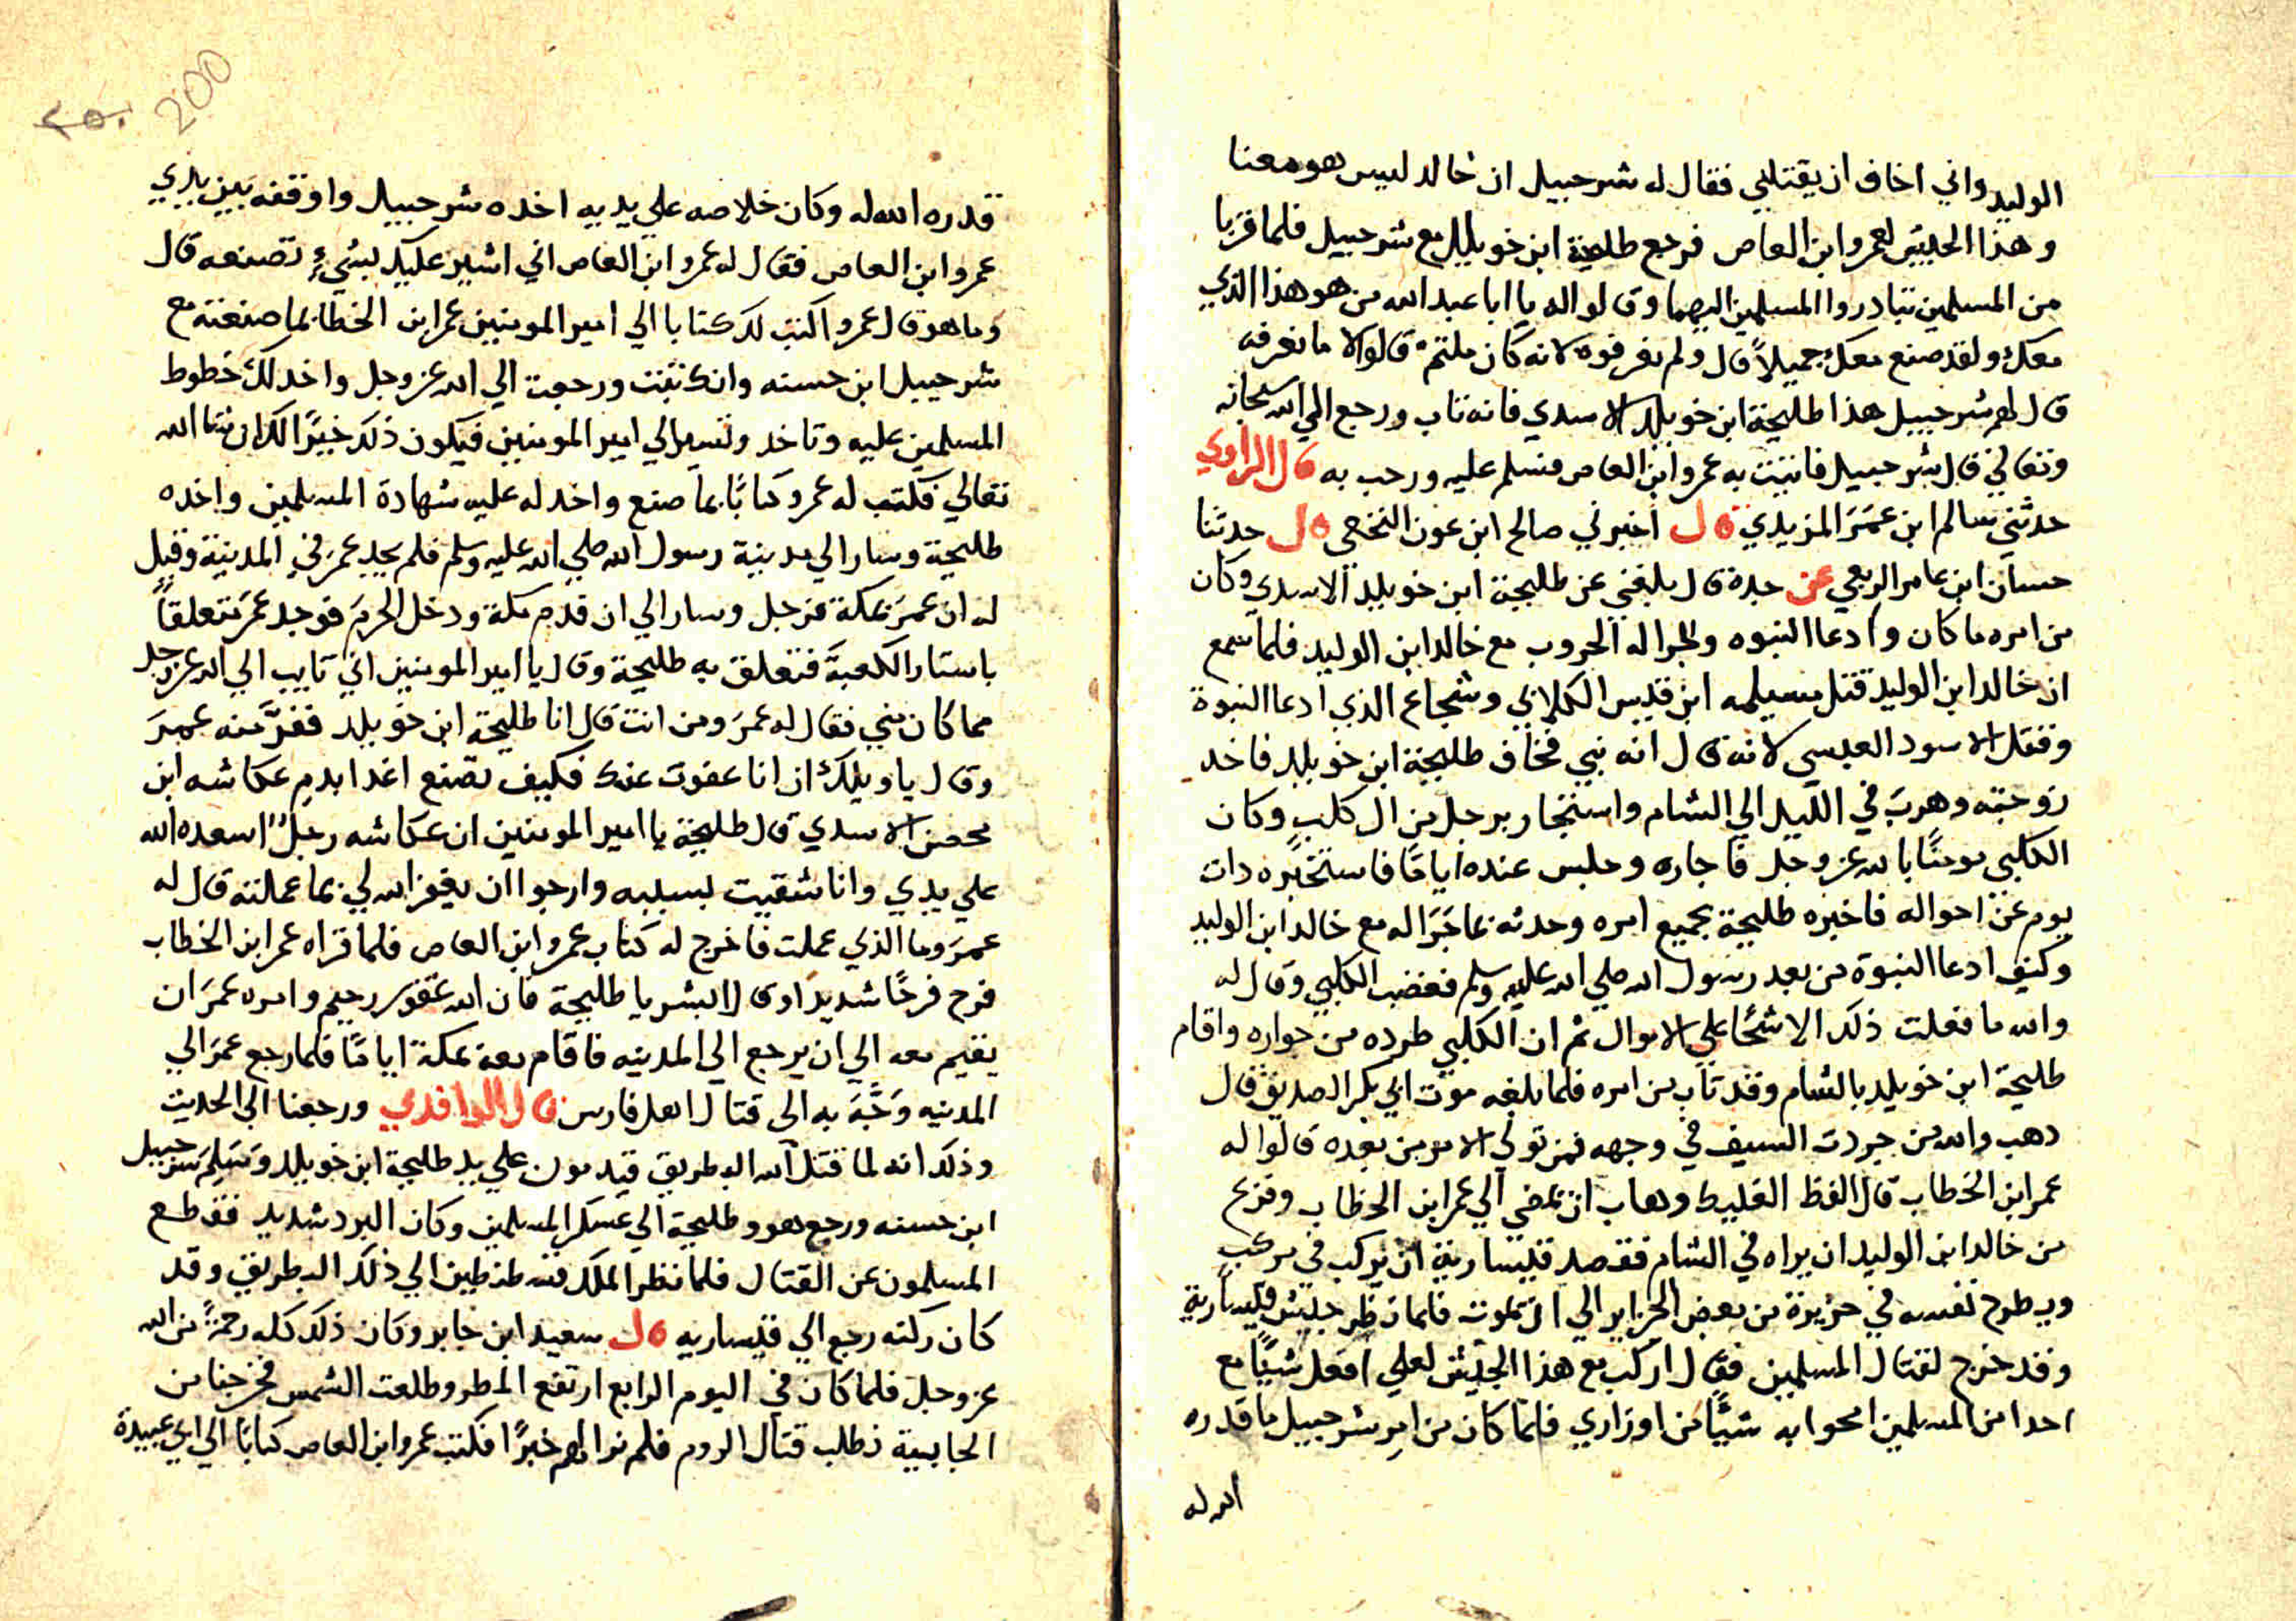 الوليد واني اخاف ان يقتلني فقال له شرحبيل ان خالد ليس هو معنا
وهذا الجيش لعمرو ابن العاص فرجع طليحة ابن خويلد مع شرحبيل فلما قربا
من المسلمين تبادروا المسلمين اليهما وقالوا له يا ابا عبد الله من هو هذا الذي
معك ولقد صنع معك جميلاً قال ولم تعرفوه لانه كان ملتم قالوا لا ما نعرفه
قال لهم شرحبيل هذا طليحة ابن خويلد الاسدي فانه تاب ورجع الي الله سبحانه
وتعالي قال شرحبيل فاتيت به عمرو ابن العاص فسلم عليه ورحب به قال الراوي
حدثني سالم ابن عمر المزيدي قال اخبرني صالح ابن عون النخعي قال حدثنا
حسان ابن عامر الربعي عن جده قال بلغني عن طليحة ابن خويلد الاسدي وكان
من امره ما كان وادعا النبوه والجرا له الحروب مع خالد ابن الوليد فلما سمع
ان خالد ابن الوليد قتل مسيلمه ابن قيس الكلابي وشجاع الذي ادعا النبوة
وفقتل الاسود العبسي لانه قال انه نبي فخاف طليحة ابن خويلد فاخد
زوجته وهرب في الليل الي الشام واستجار برجل من ال كلب وكان
الكلبي مومنًا بالله عز وجل فاجاره وجلس عنده ايامًا فاستخبره دات
يوم عن احواله فاخبره طليحة بجميع امره وحدثه بما جرا له مع خالد ابن الوليد
وكيف ادعا النبوة من بعد رسول الله صلي الله عليه وسلم فغضب الكلبي وقال له
والله ما فعلت ذلك الا شحًا علي الاموال ثم ان الكلبي طرده من جواره واقام
طليحة ابن خويلد بالشام وقد تاب من امره فلما بلغه موت ابي بكر الصديق قال
دهب والله من جردت السيف في وجهه فمن تولي الامر من بعده قالوا له
عمر ابن الخطاب قال الفظ الغليظ وهاب ان يمضي الي عمر ابن الخطاب وفزع
من خالد ابن الوليد ان يراه في الشام فقصد قيسارية ان يركب في مركب
ويطرح نفسه في جزيرة من بعض الجزاير الي ان يموت فلما نظر جيش قيسارية
وقد خرج لقتال المسلمين فقال اركب مع هذا الجيش لعلي افعل شيًا مع
احدا من المسلمين امحوا به شيًا من اوزاري فلما كان من امر شرحبيل ما قدره
الله له
200
٢٥٠
قدره الله له وكان خلاصه علي يديه اخده شرحبيل واوقفه بين يدي
عمرو ابن العاص فقال له عمرو ابن العاص اني اشير عليك بشيء تصنعه قال
وما هو قال عمرو اكتب لك كتابا الي امير المومنين عمر ابن الخطا بما صنعته مع
شرحبيل ابن حسنه وانك تبت ورجعت الي الله عز وجل واخد لك خطوط
المسلمين عليه وتاخد وتسير الي امير المومنين فيكون ذلك خيرًا لك ان شا الله
تعالي فكتب له عمرو كتابًا بما صنع واخد له عليه شهادة المسلمين واخده
طليحة وسار الي مدينة رسول الله صلي الله عليه وسلم فلم يجد عمر في المدينة وقيل
له ان عمر بمكة فرحل وسار الي ان قدم مكة ودخل الحرم فوجد عمر متعلقاً
باستار الكعبة فتعلق به طليحة وقال يا امير المومنين اني تايب الي الله عز وجل
مما كان مني فقال له عمر ومن انت قال انا طليحة ابن خويلد ففر منه عمر
وقال يا ويلك ان انا عفوت عنك فكيف تصنع اغدا بدم عكاشه ابن
محصن الاسدي قال طليحة يا امير المومنين ان عكاشه رجلٌ اسعده الله
علي يدي وانا شقيت بسببه وارجوا ان يغفر الله لي بما عملته قال له
عمر وما الذي عملت فاخرج له كتاب عمرو ابن العاص فلما قراه عمر ابن الخطاب
فرح فرحًا شديدًا وقال ابشر يا طليحة فان الله غفور رحيم وامره عمر ان
يقيم معه الي ان يرجع الي المدينه فاقام معه بمكة ايامًا فلما رجع عمر الي
المدينه وجه به الي قتال اهل فارس قال الواقدي ورجعنا الي الحديث
وذلك انه لما قتل الله البطريق قيدمون علي يد طليحة ابن خويلد وتسلم شرحبيل
ابن حسنه ورجع هو وطليحة الي عسكر المسلمين وكان البرد شديد فقطع
المسلمون عن القتال فلما نظر الملك قسطنطين الي ذلك البطريق وقد
كان ركته رجع الي قيساريه قال سعيد ابن جابر وكان ذلك كله رحمةً من الله
عز وجل فلما كان في اليوم الرابع ارتفع المطر وطلعت الشمس فخرجنا من
الجابية نطلب قتال الروم فلم نرا لهم خبرًا فكتب عمرو ابن العاص كتابًا الي ابي عبيدة